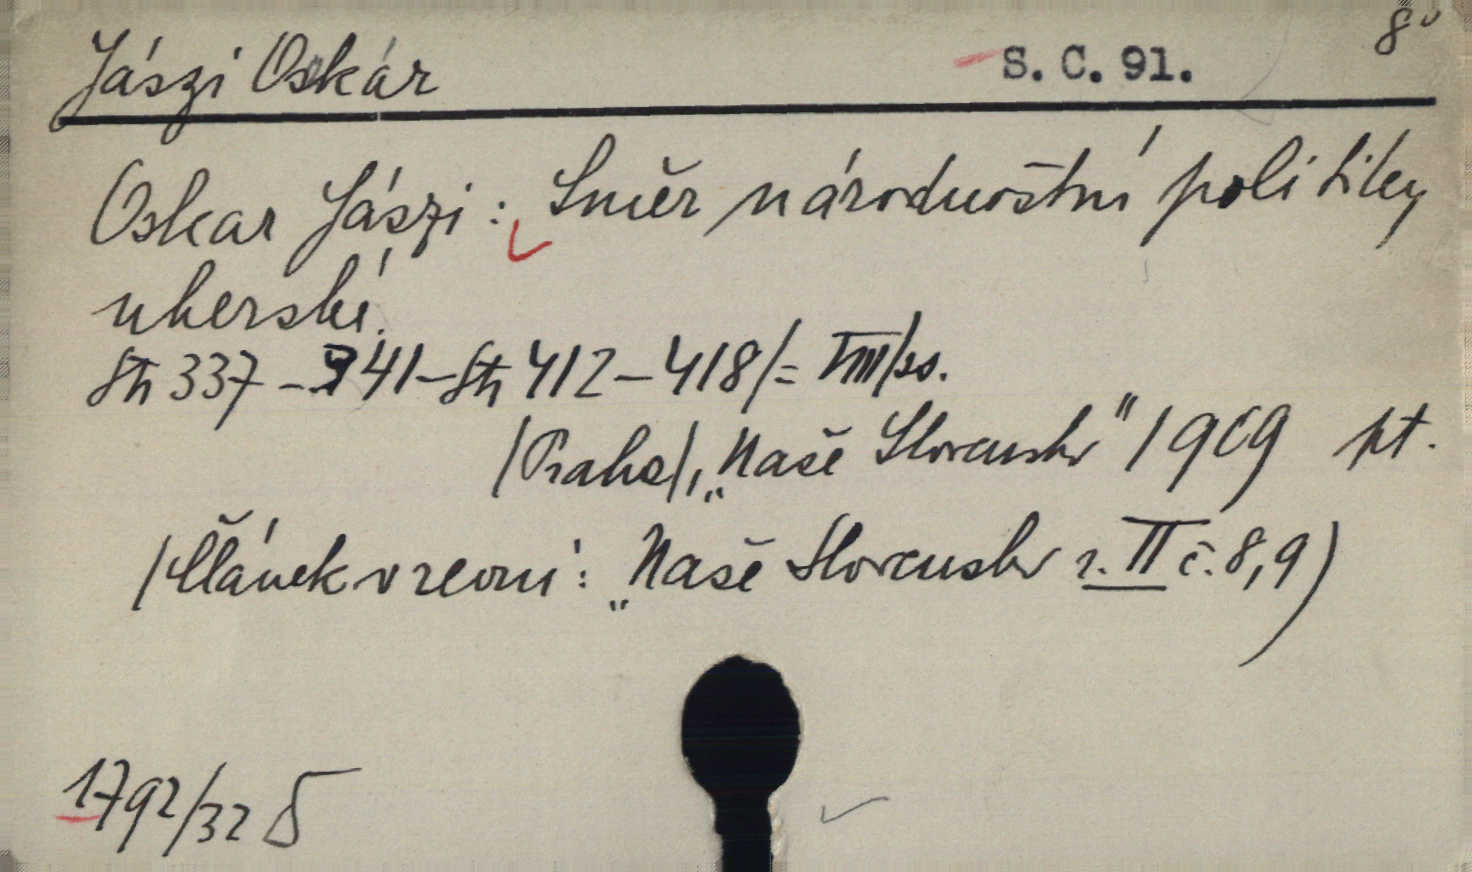 8°
Jászi Oskár S. C. 91.
Oskar Jászi: Směr národnostní politiky
uherské.
Str 337 - 341 - Str 412 - 418 /= VIII/ ss.
/Praha/, „Naše Slovensko" 1909 pt.
/Článek v revui: „Naše Slovensko r. II č. 8, 9)
1792/32